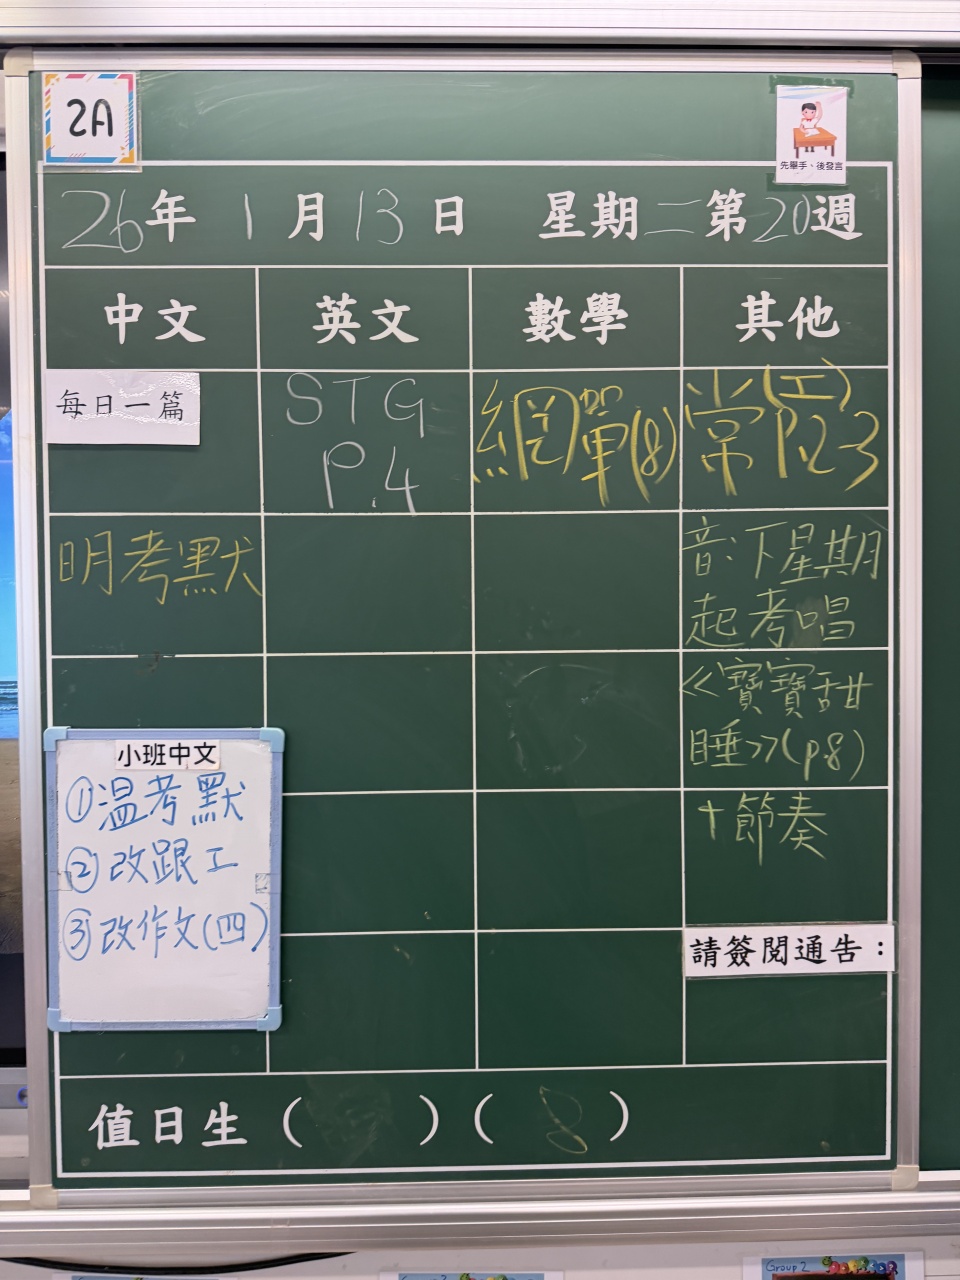 2A
先舉手、後發言
26年 1月 13日 星期二 第20週
中文 英文 數學 其他
每日一篇
STG
P.4
網單(8)
常(工)
P.2-3
明考默
音:下星期
起考唱
《寶寶甜
睡》(p.8)
+節奏
小班中文
①溫考默
②改跟工
③改作文(四)
請簽閱通告:
值日生 ( ) ( 8 )
Group 2